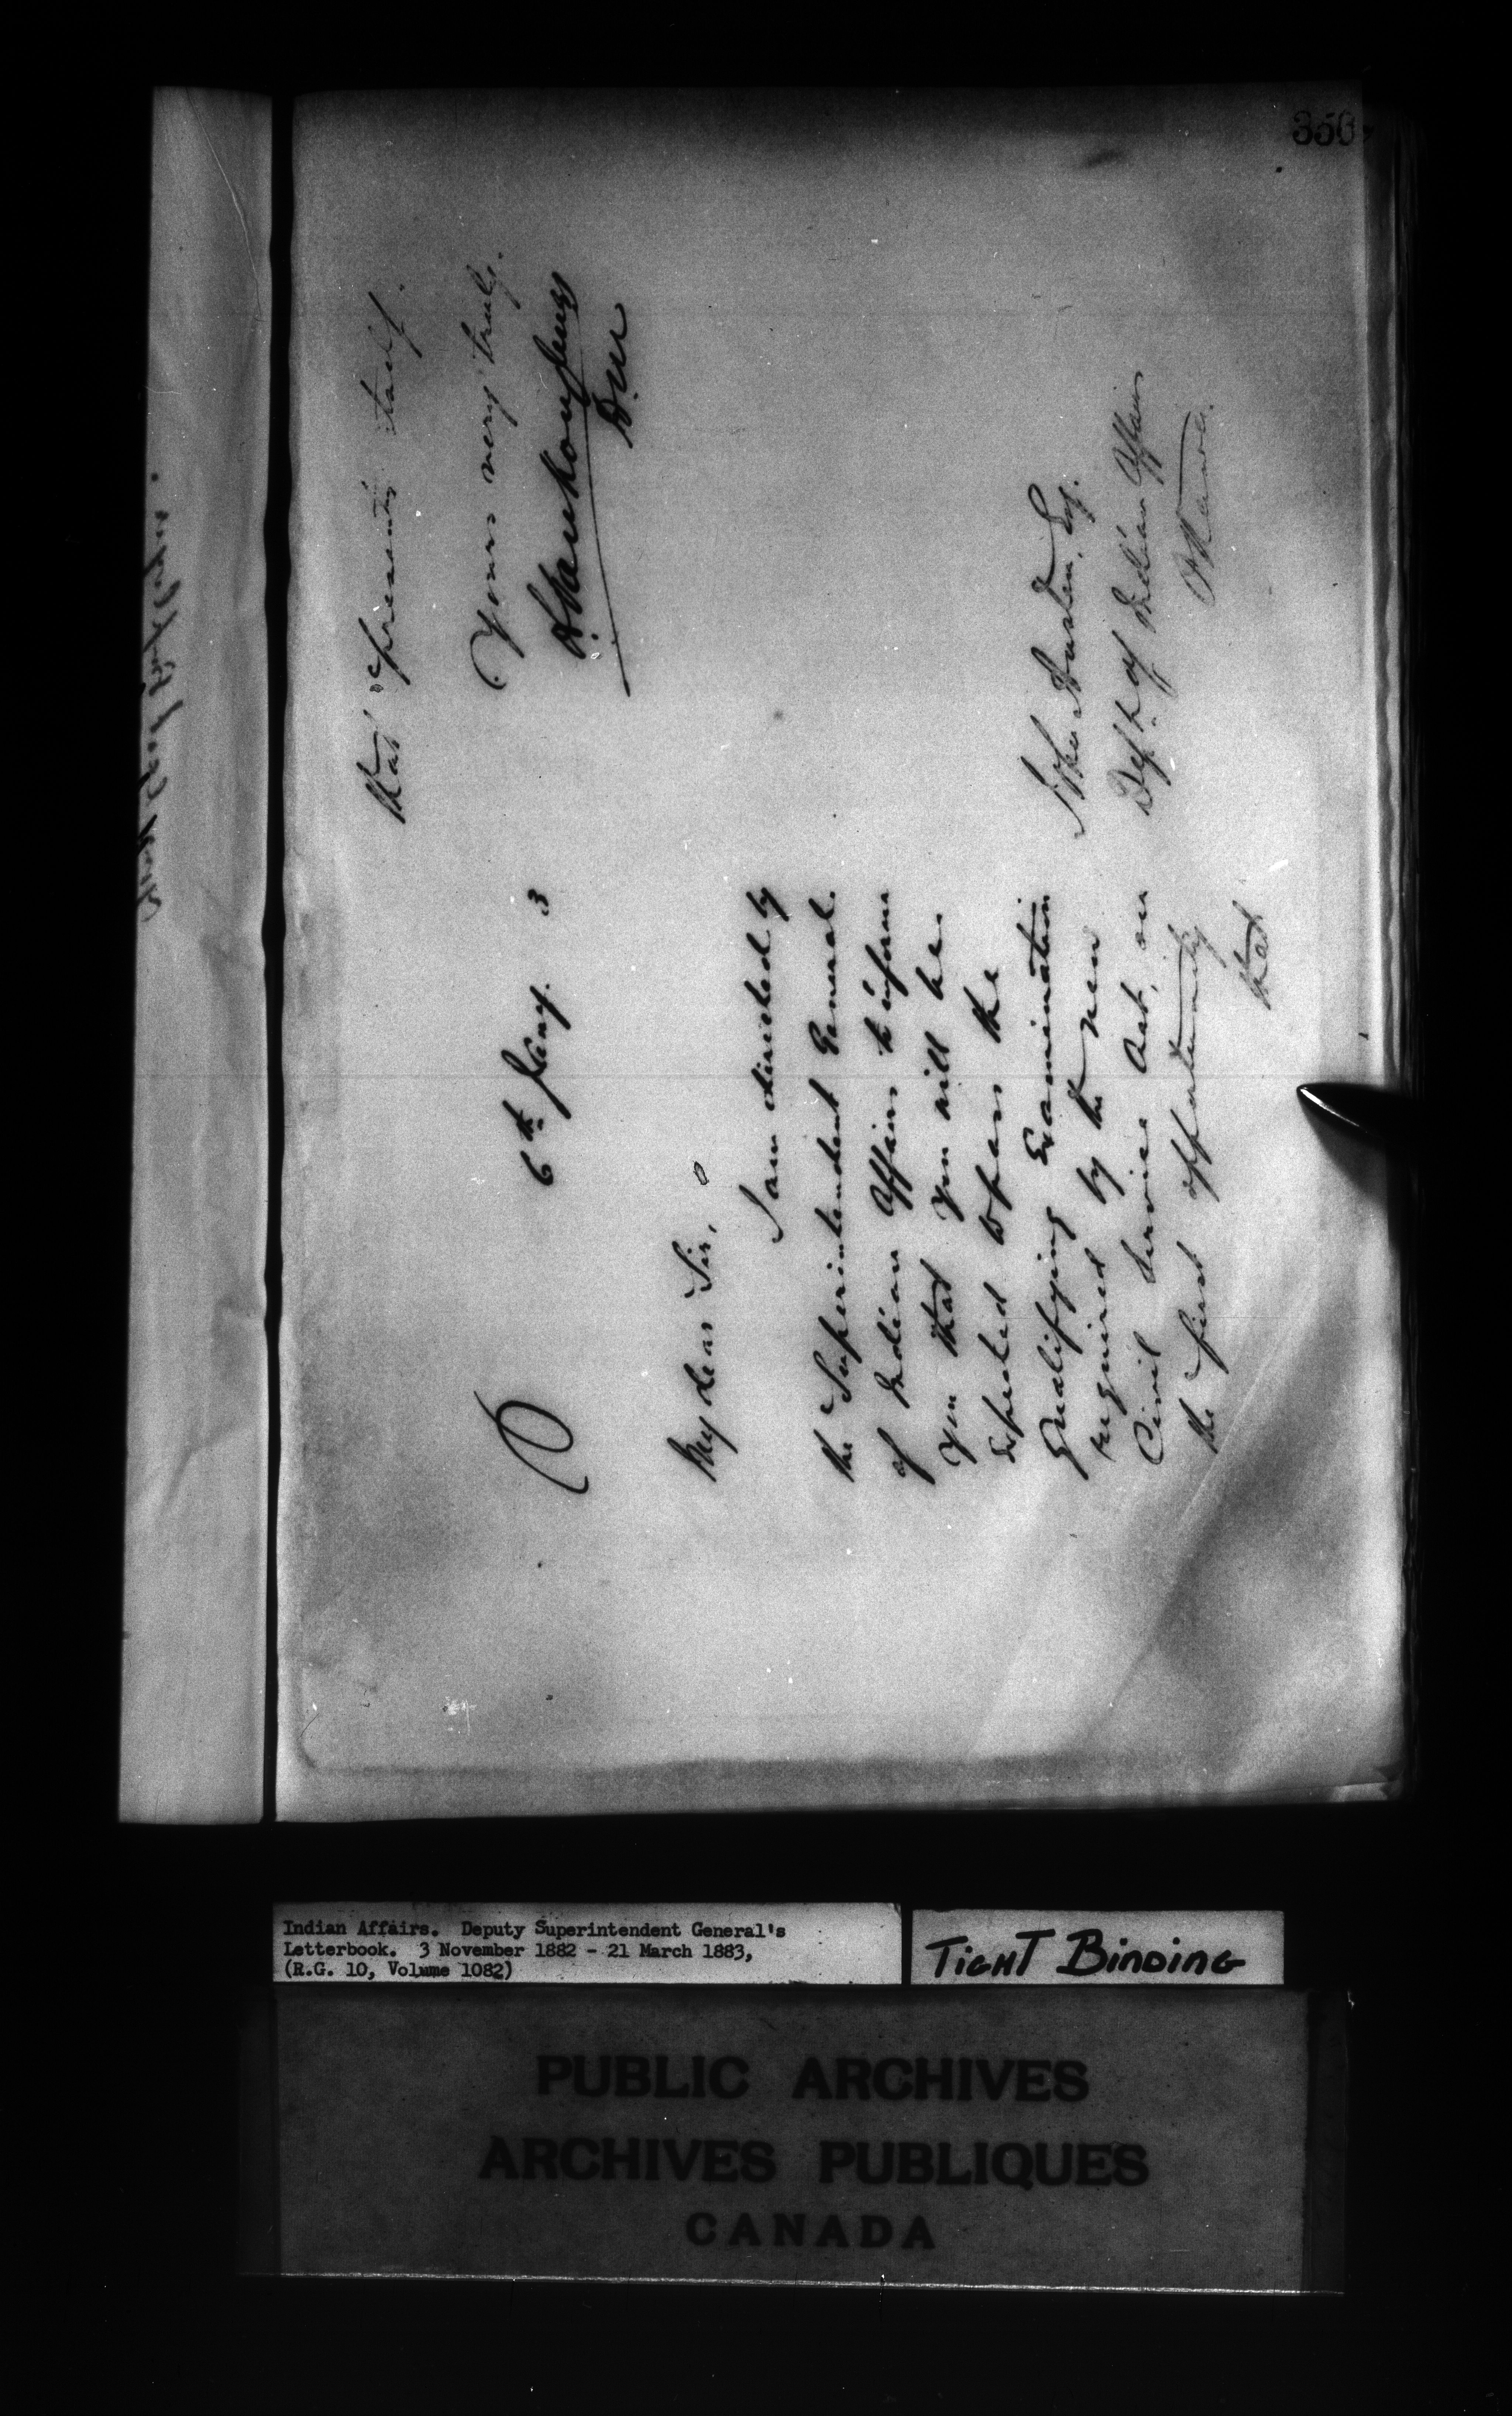 350
6th Jany. 3
My dear Sir,
I am directed by
the Superintendent General
of Indian Affairs to inform
you that you will be
expected to pass the
Qualifying Examination
required by the new
Civil Service Act, on
the first opportunity
that
that presents itself.
Yours very truly.
L. Vankoughnet
D.M.
John Austin, Esq.
Dept. of Indian Affairs
Ottawa.
Indian Affairs. Deputy Superintendent General's
Letterbook. 3 November 1882 - 21 March 1883,
(R.G. 10, Volume 1082)
TIGHT BINDING
PUBLIC ARCHIVES
ARCHIVES PUBLIQUES
CANADA